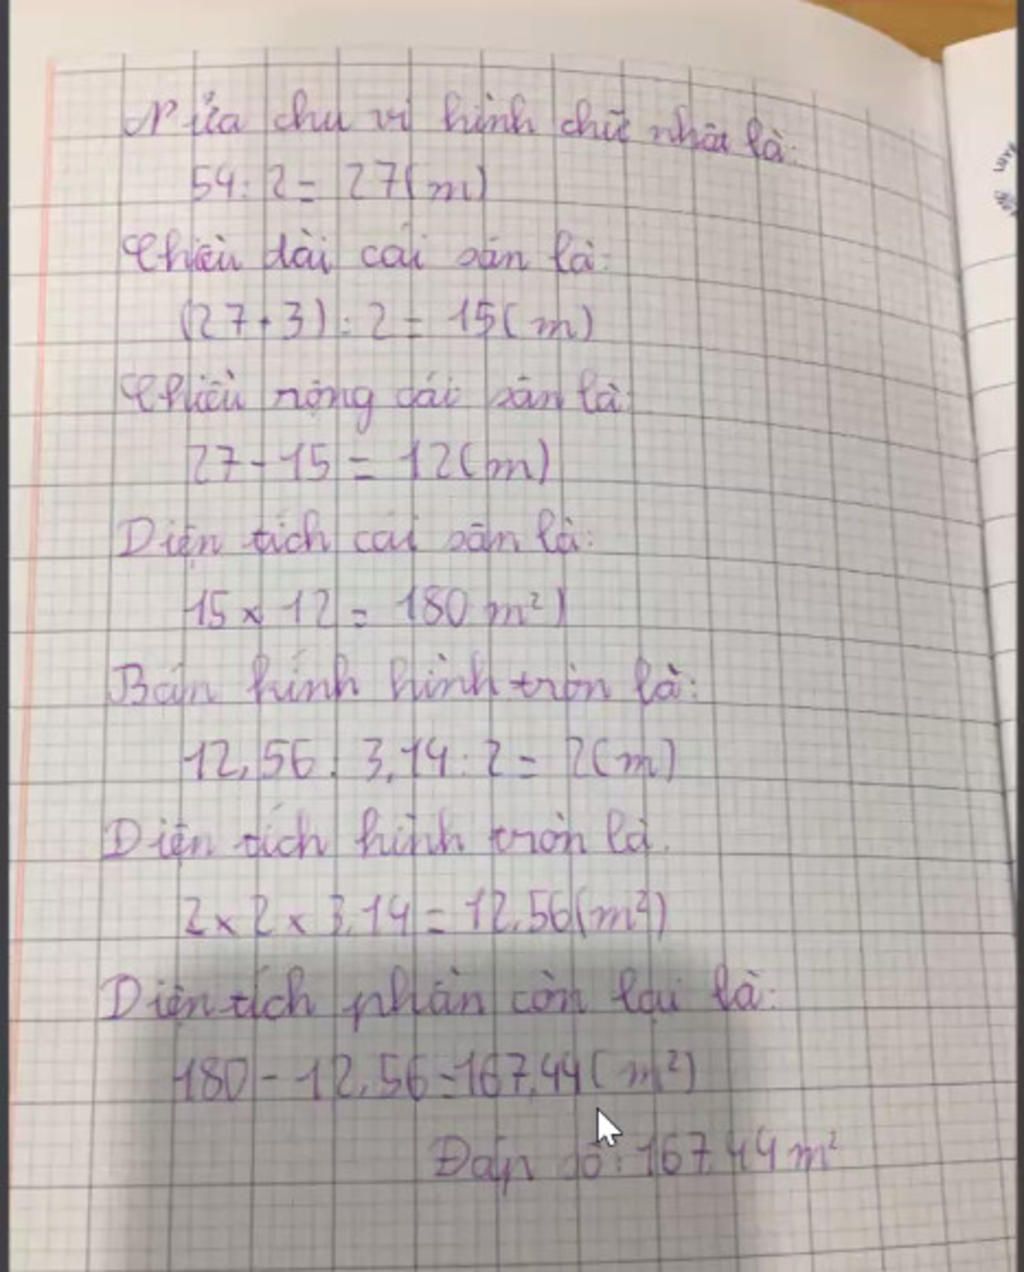 Nửa chu vi hình chữ nhật là:
54 : 2 = 27 (m)
Chiều dài cái sân là:
(27 + 3) : 2 = 15 (m)
Chiều rộng cái sân là:
27 - 15 = 12 (m)
Diện tích cái sân là:
15 x 12 = 180 m²)
Bán kính hình tròn là:
12,56 : 3,14 : 2 = 2 (m)
Diện tích hình tròn là:
2 x 2 x 3,14 = 12,56 (m²)
Diện tích phần còn lại là:
180 - 12,56 = 167,44 (m²)
Đáp số: 167,44 m²